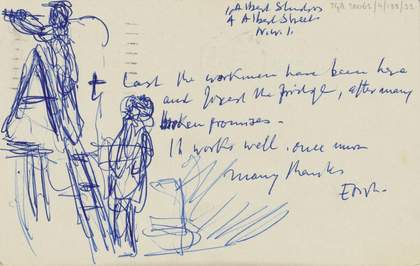 1, Albert Studios
4 Albert Street
N.W.1.
At Last the workmen have been here
and fixed the fridge, after many
broken promises.
It works well. once more
many thanks